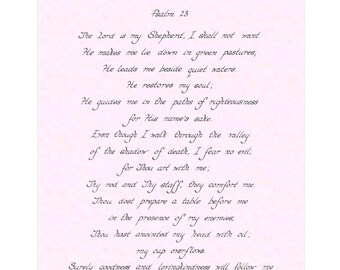 Psalm 23
The Lord is my Shepherd, I shall not want.
He makes me lie down in green pastures,
He leads me beside quiet waters.
He restores my soul;
He guides me in the paths of righteousness
for His name's sake.
Even though I walk through the valley
of the shadow of death, I fear no evil,
for Thou art with me;
Thy rod and Thy staff, they comfort me.
Thou dost prepare a table before me
in the presence of my enemies;
Thou hast anointed my head with oil;
my cup overflows.
Surely goodness and lovingkindness will follow me